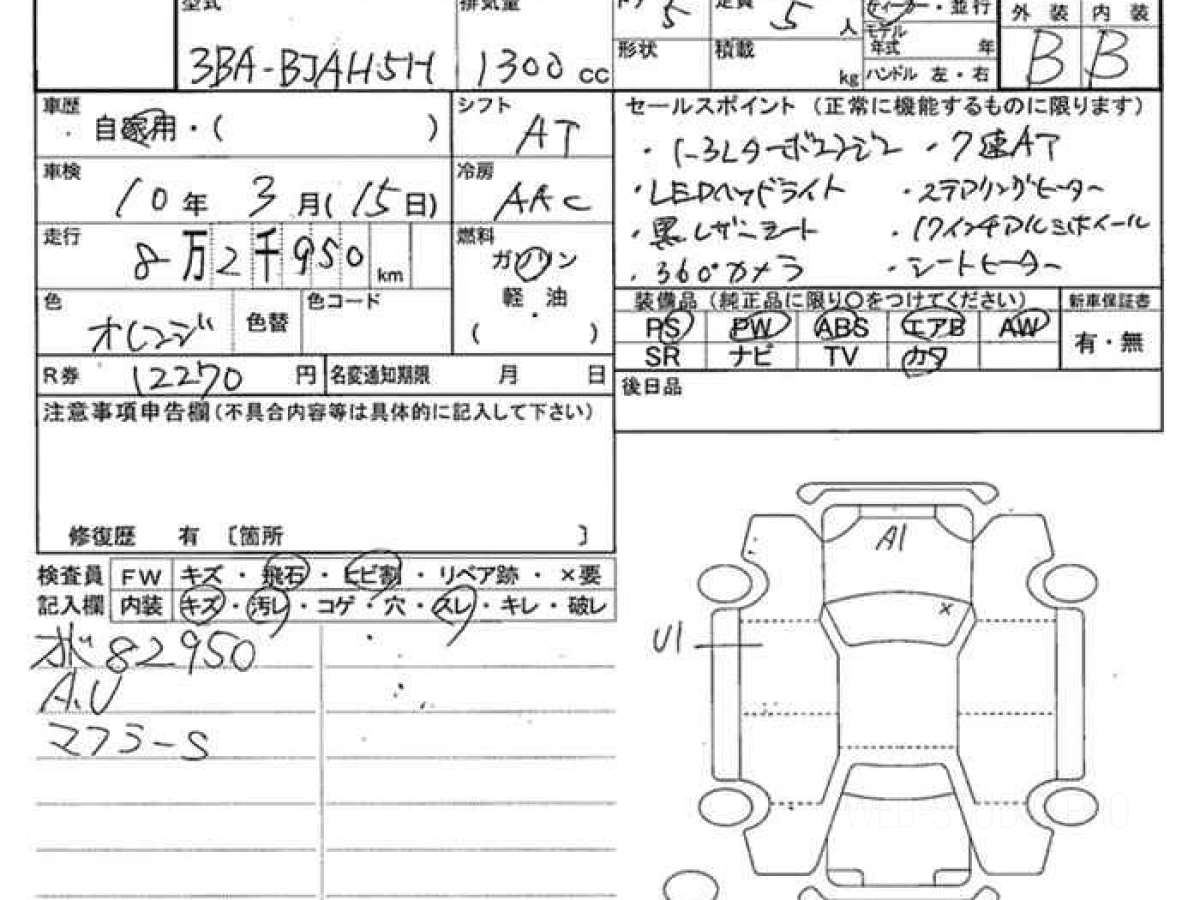 型式 排気量 ドア 5 定員 5 人 ディーラー・並行 外装 内装
モデル年式 年
3BA-BJAH5H 1300 cc 形状 積載 kg ハンドル 左・右 B B
車歴 自家用・( ) シフト AT
車検 10年 3月(15日) 冷房 AAC
走行 8万2千950 km 燃料 ガソリン
軽油
( )
色 オレンジ 色替 色コード
R券 12270 円 名変通知期限 月 日
注意事項申告欄(不具合内容等は具体的に記入して下さい)
修復歴 有 〔箇所 〕
セールスポイント(正常に機能するものに限ります)
・1.3Lターボエンジン ・7速AT
・LEDヘッドライト ・ステアリングヒーター
・黒レザーシート ・17インチアルミホイール
・360°カメラ ・シートヒーター
装備品(純正品に限り○をつけてください) 新車保証書
PS PW ABS エアB AW 有・無
SR ナビ TV カワ
後日品
検査員 FW キズ・飛石・ヒビ割・リペア跡・×要
記入欄 内装 キズ・汚レ・コゲ・穴・スレ・キレ・破レ
ボ 82950
A.U
マフラーS
A1
×
U1